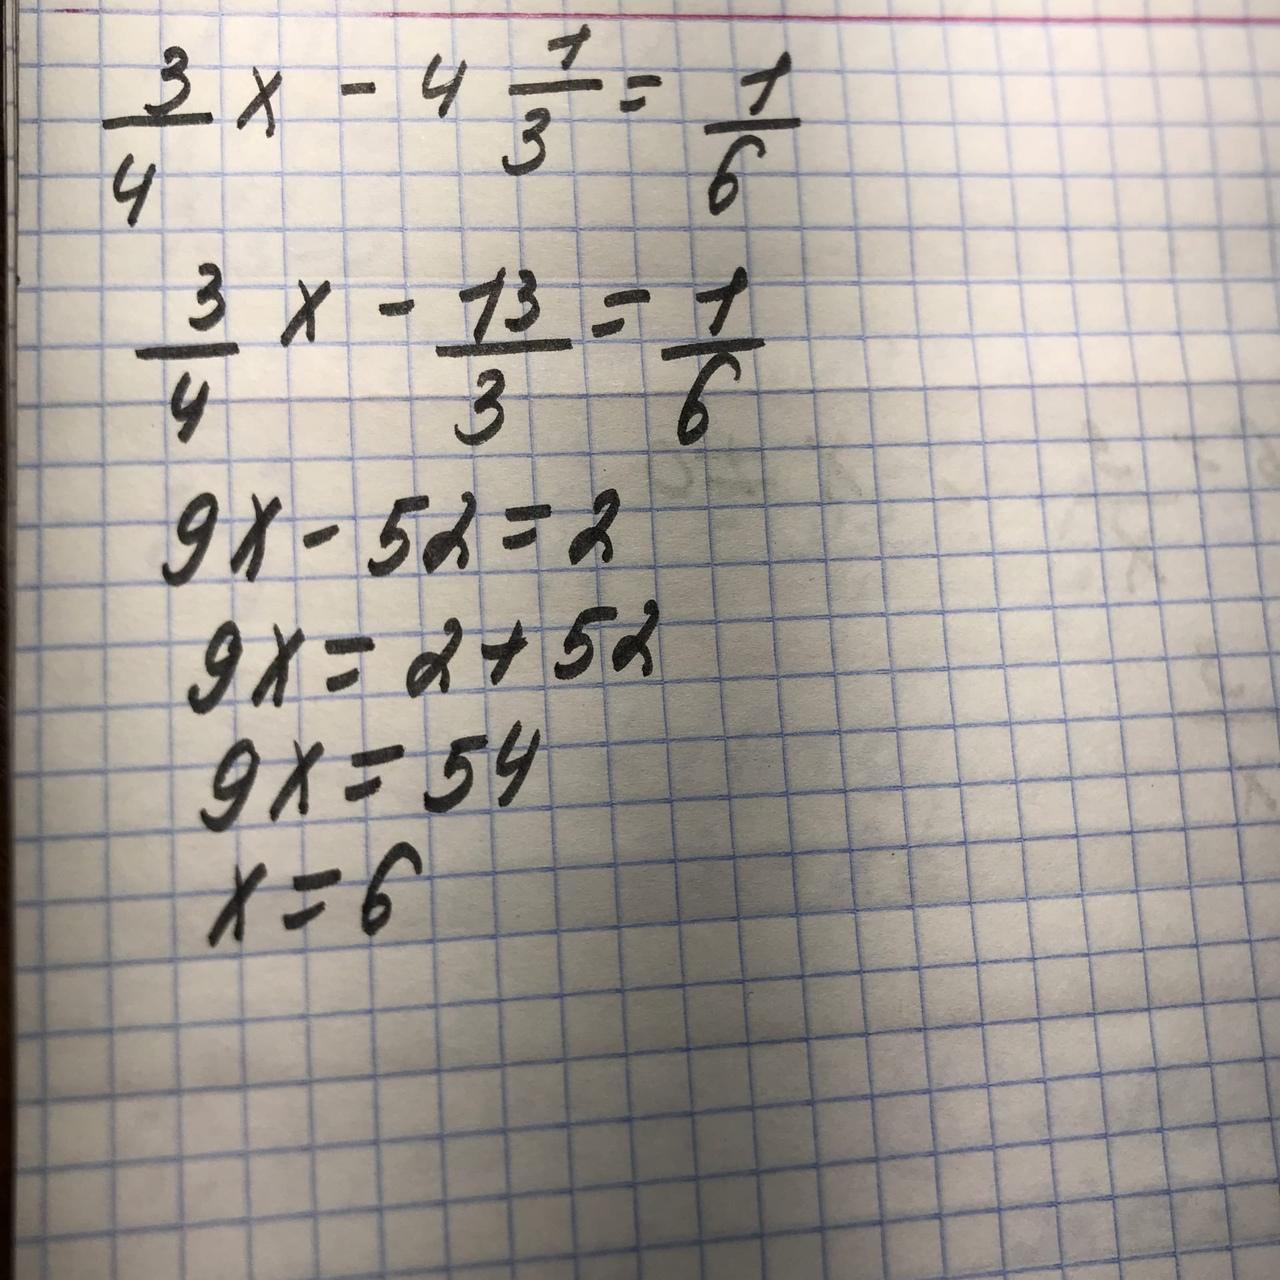 3/4 x - 4 1/3 = 1/6
3/4 x - 13/3 = 1/6
9x - 52 = 2
9x = 2 + 52
9x = 54
x = 6